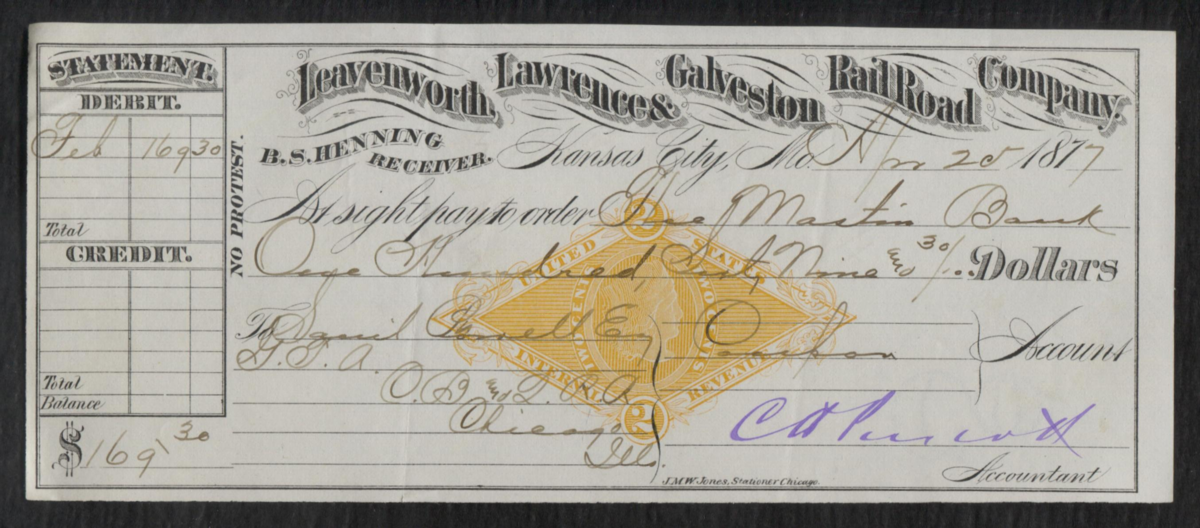 STATEMENT.
DEBIT.
Feb 169 30
Total
CREDIT.
Total
Balance
$ 169 30
NO PROTEST.
Leavenworth, Lawrence & Galveston Rail Road Company.
B. S. HENNING
RECEIVER.
Kansas City, Mo. Apr 25 1877
At sight pay to order The Mastin Bank
One Hundred, Sixty Nine and 30/.. Dollars
To Powell Esq Coupon Account
G. T. A.
C. B and Q. R. R.
Chicago
Ills.
UNITED STATES
INTERNAL REVENUE
TWO CENTS
2
2
C H Prescott
Accountant
J.M.W. Jones, Stationer Chicago.